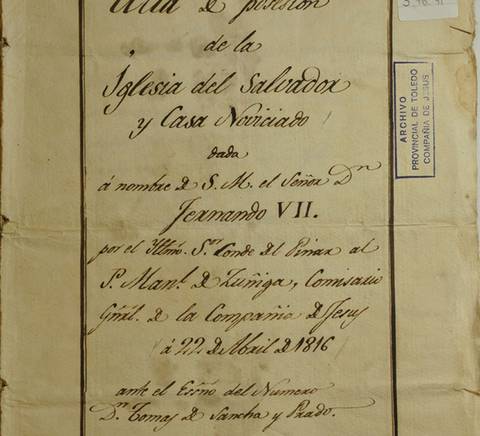 Acta de posesion
de la
Iglesia del Salvador
y Casa Noviciado
dada
á nombre de S. M. el Señor Dn
Fernando VII.
por el Yltmô. Sor. Conde del Pinar al
P. Manl. de Zuñiga, Comisario
Gñrl. de la Compañia de Jesus
á 22 de Abril de 1816
ante el Essño del Numero
Dn. Tomas de Sancha y Prado.
ARCHIVO
PROVINCIAL DE TOLEDO
COMPAÑIA DE JESUS